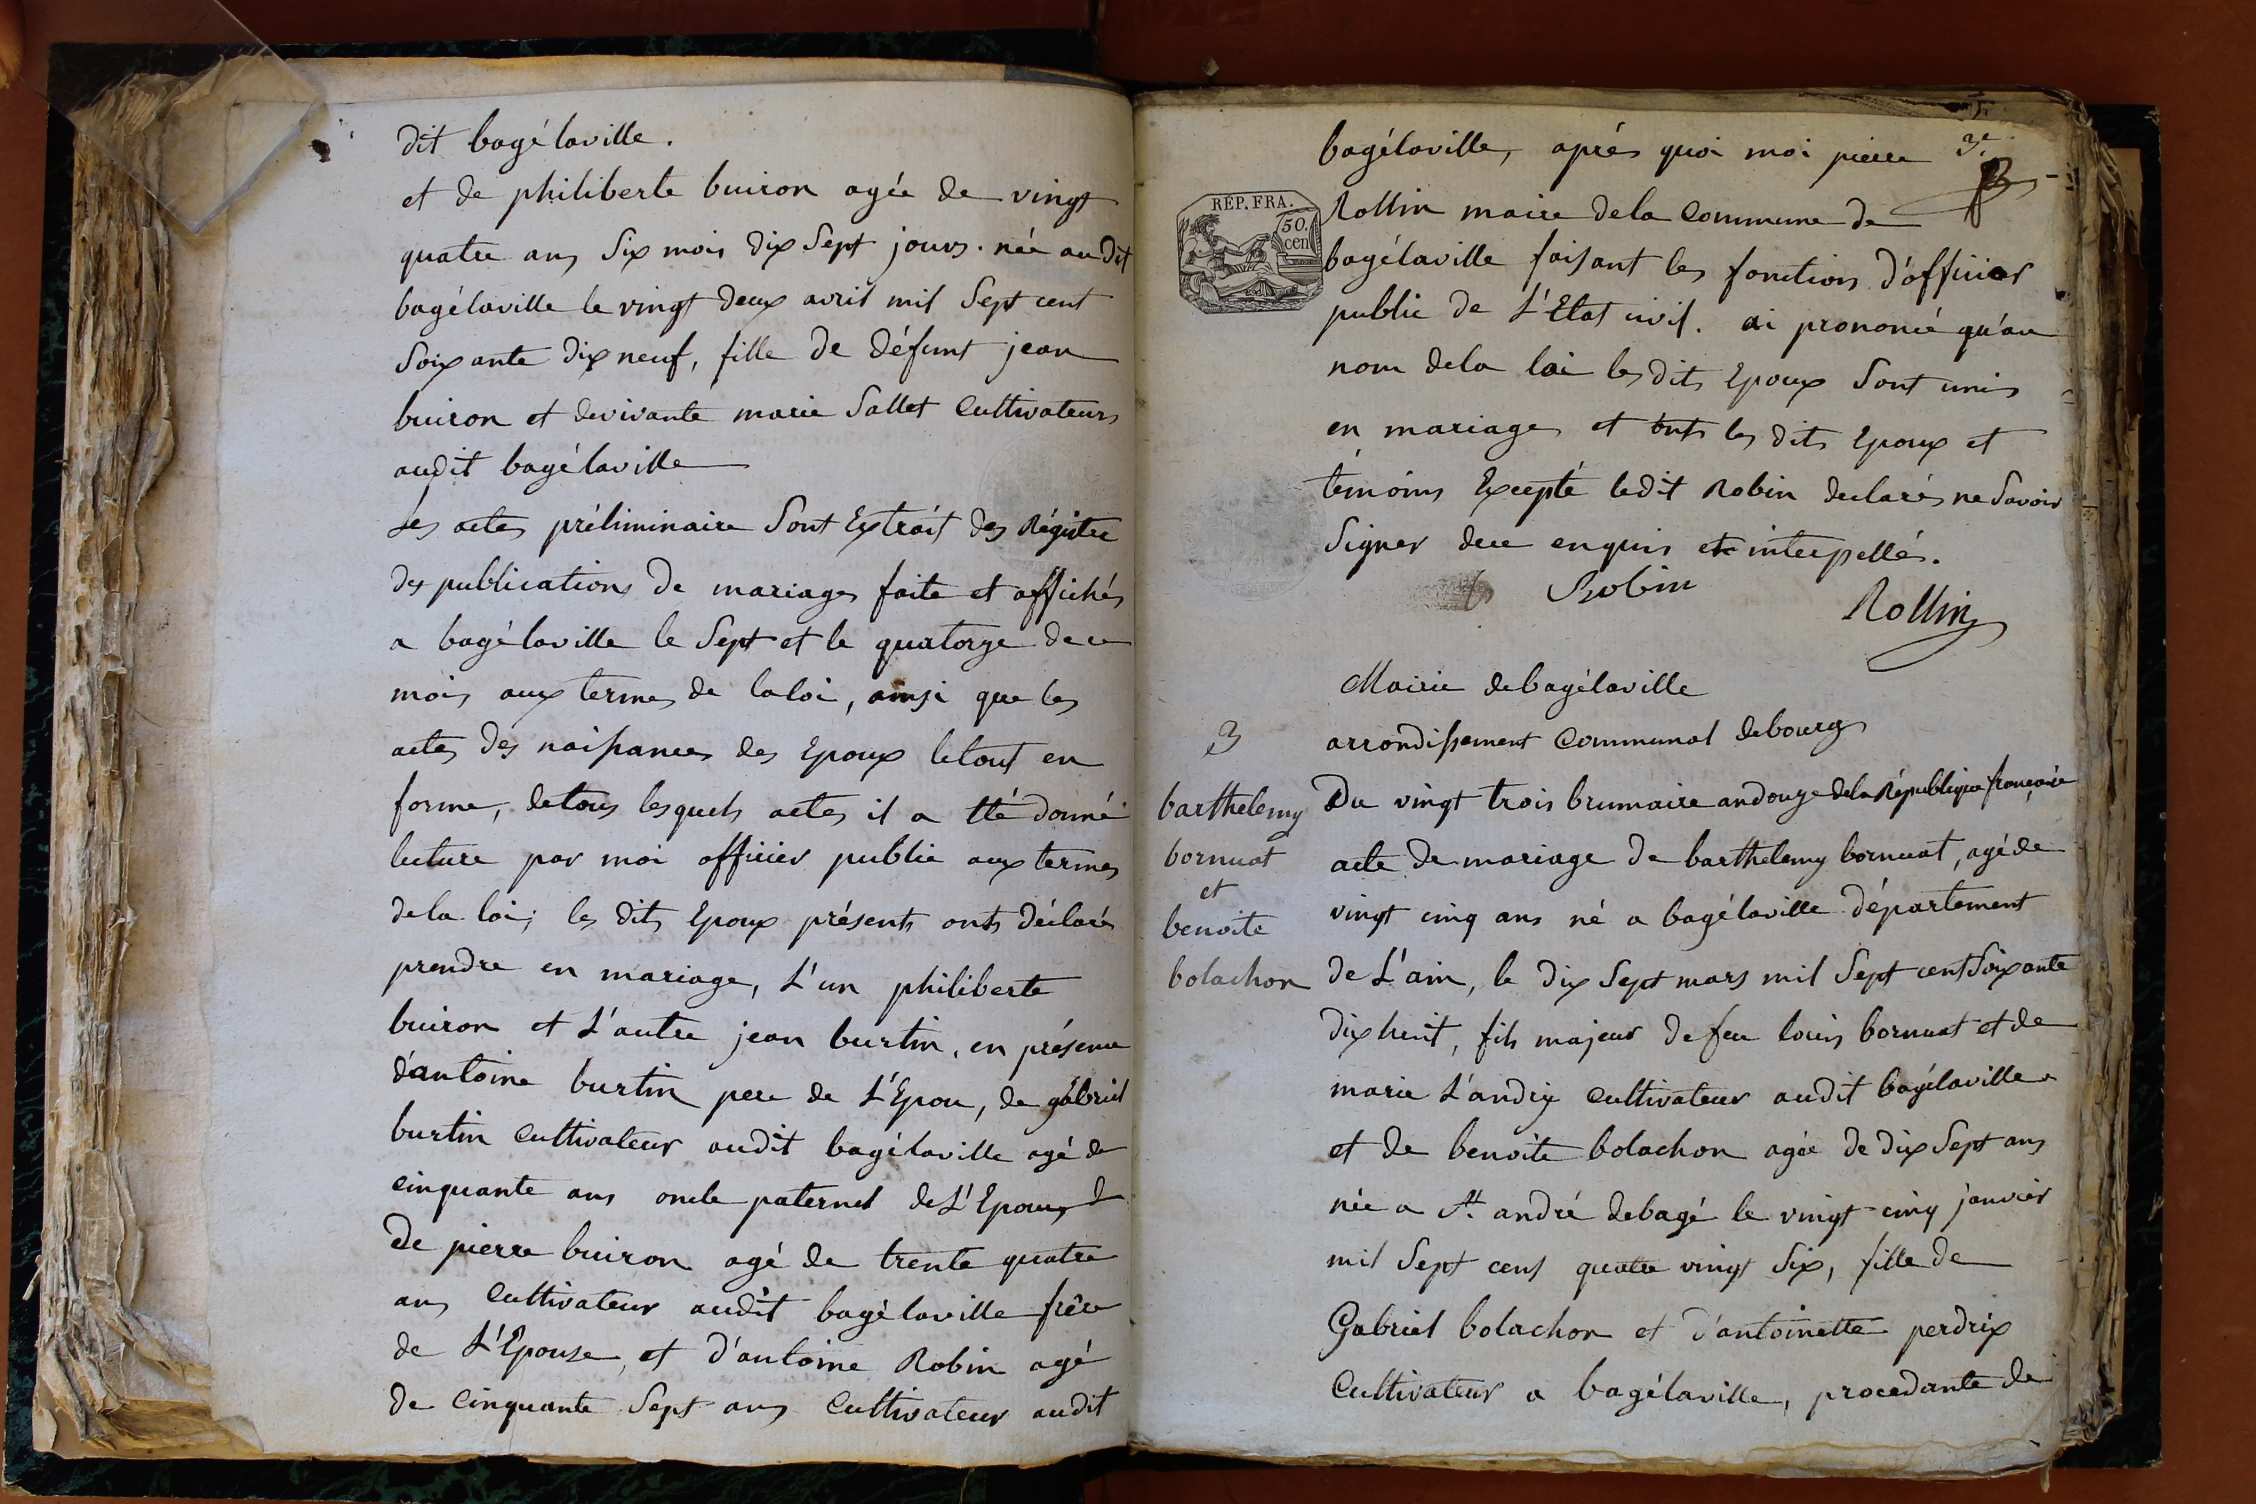 dit bagélaville.
et de philiberte buiron agée de vingt
quatre ans Six mois dix Sept jours. née audit
bagélaville le vingt deux avril mil Sept cent
Soixante dix neuf, fille de défunt jean
buiron et devivante marie Sallet Cultivateurs
audit bagélaville
Les actes préliminaire Sont Extrait des Régistre
des publications de mariages faite et affichés
a bagélaville le Sept et le quatorze de ce
mois aux termes de laloi, ainsi que les
actes des naissances des Epoux letout en
forme, detous lesquels actes il a été donné
lecture par moi officier public aux termes
dela loi; les dits Epoux présents onts déclarés
prendre en mariage, L'un philiberte
buiron et L'autre jean burtin, en présence
d'antoine burtin pere de L'Epou, de gabriel
burtin Cultivateur audit bagélaville agé de
cinquante ans oncle paternel de L'Epoux
de pierre buiron agé de trente quatre
ans Cultivateur audit bagélaville frère
de L'Epouse, et d'antoine Robin agé
de Cinquante Sept ans Cultivateur audit
3e.
bagélaville, aprés quoi moi pierre
RÉP. FRA.
50.
cen
Rollin maire dela Commune de
bagélaville faisant les fonction d'officier
public de L'Etat civil. ai prononcé qu'au
nom dela loi les dits Epoux Sont unis
en mariages et onts les dits Epoux et
témoins Excepté ledit Robin declarés ne Savoir
Signer dece enquis et interpellés.
Robin
Rollin
Mairie debagélaville
arrondissement Communal debourg
3
barthelemy
bornuat
et
benoite
bolachon
Du vingt trois brumaire andouze dela République françaice
acte de mariage de barthelemy bornuat, agé de
vingt cinq ans né a bagélaville département
de L'ain, le dix Sept mars mil Sept cent Soixante
dix huit, fils majeur de feu louis bornuat et de
marie L'andry Cultivateur audit bagélaville
et de benoite bolachon agée de dix Sept ans
née a St. andré debagé le vingt cinq janvier
mil Sept cent quatre vingt Six, fille de
Gabriel bolachon et d'antoinette perdrix
Cultivateur a bagélaville, procedante de